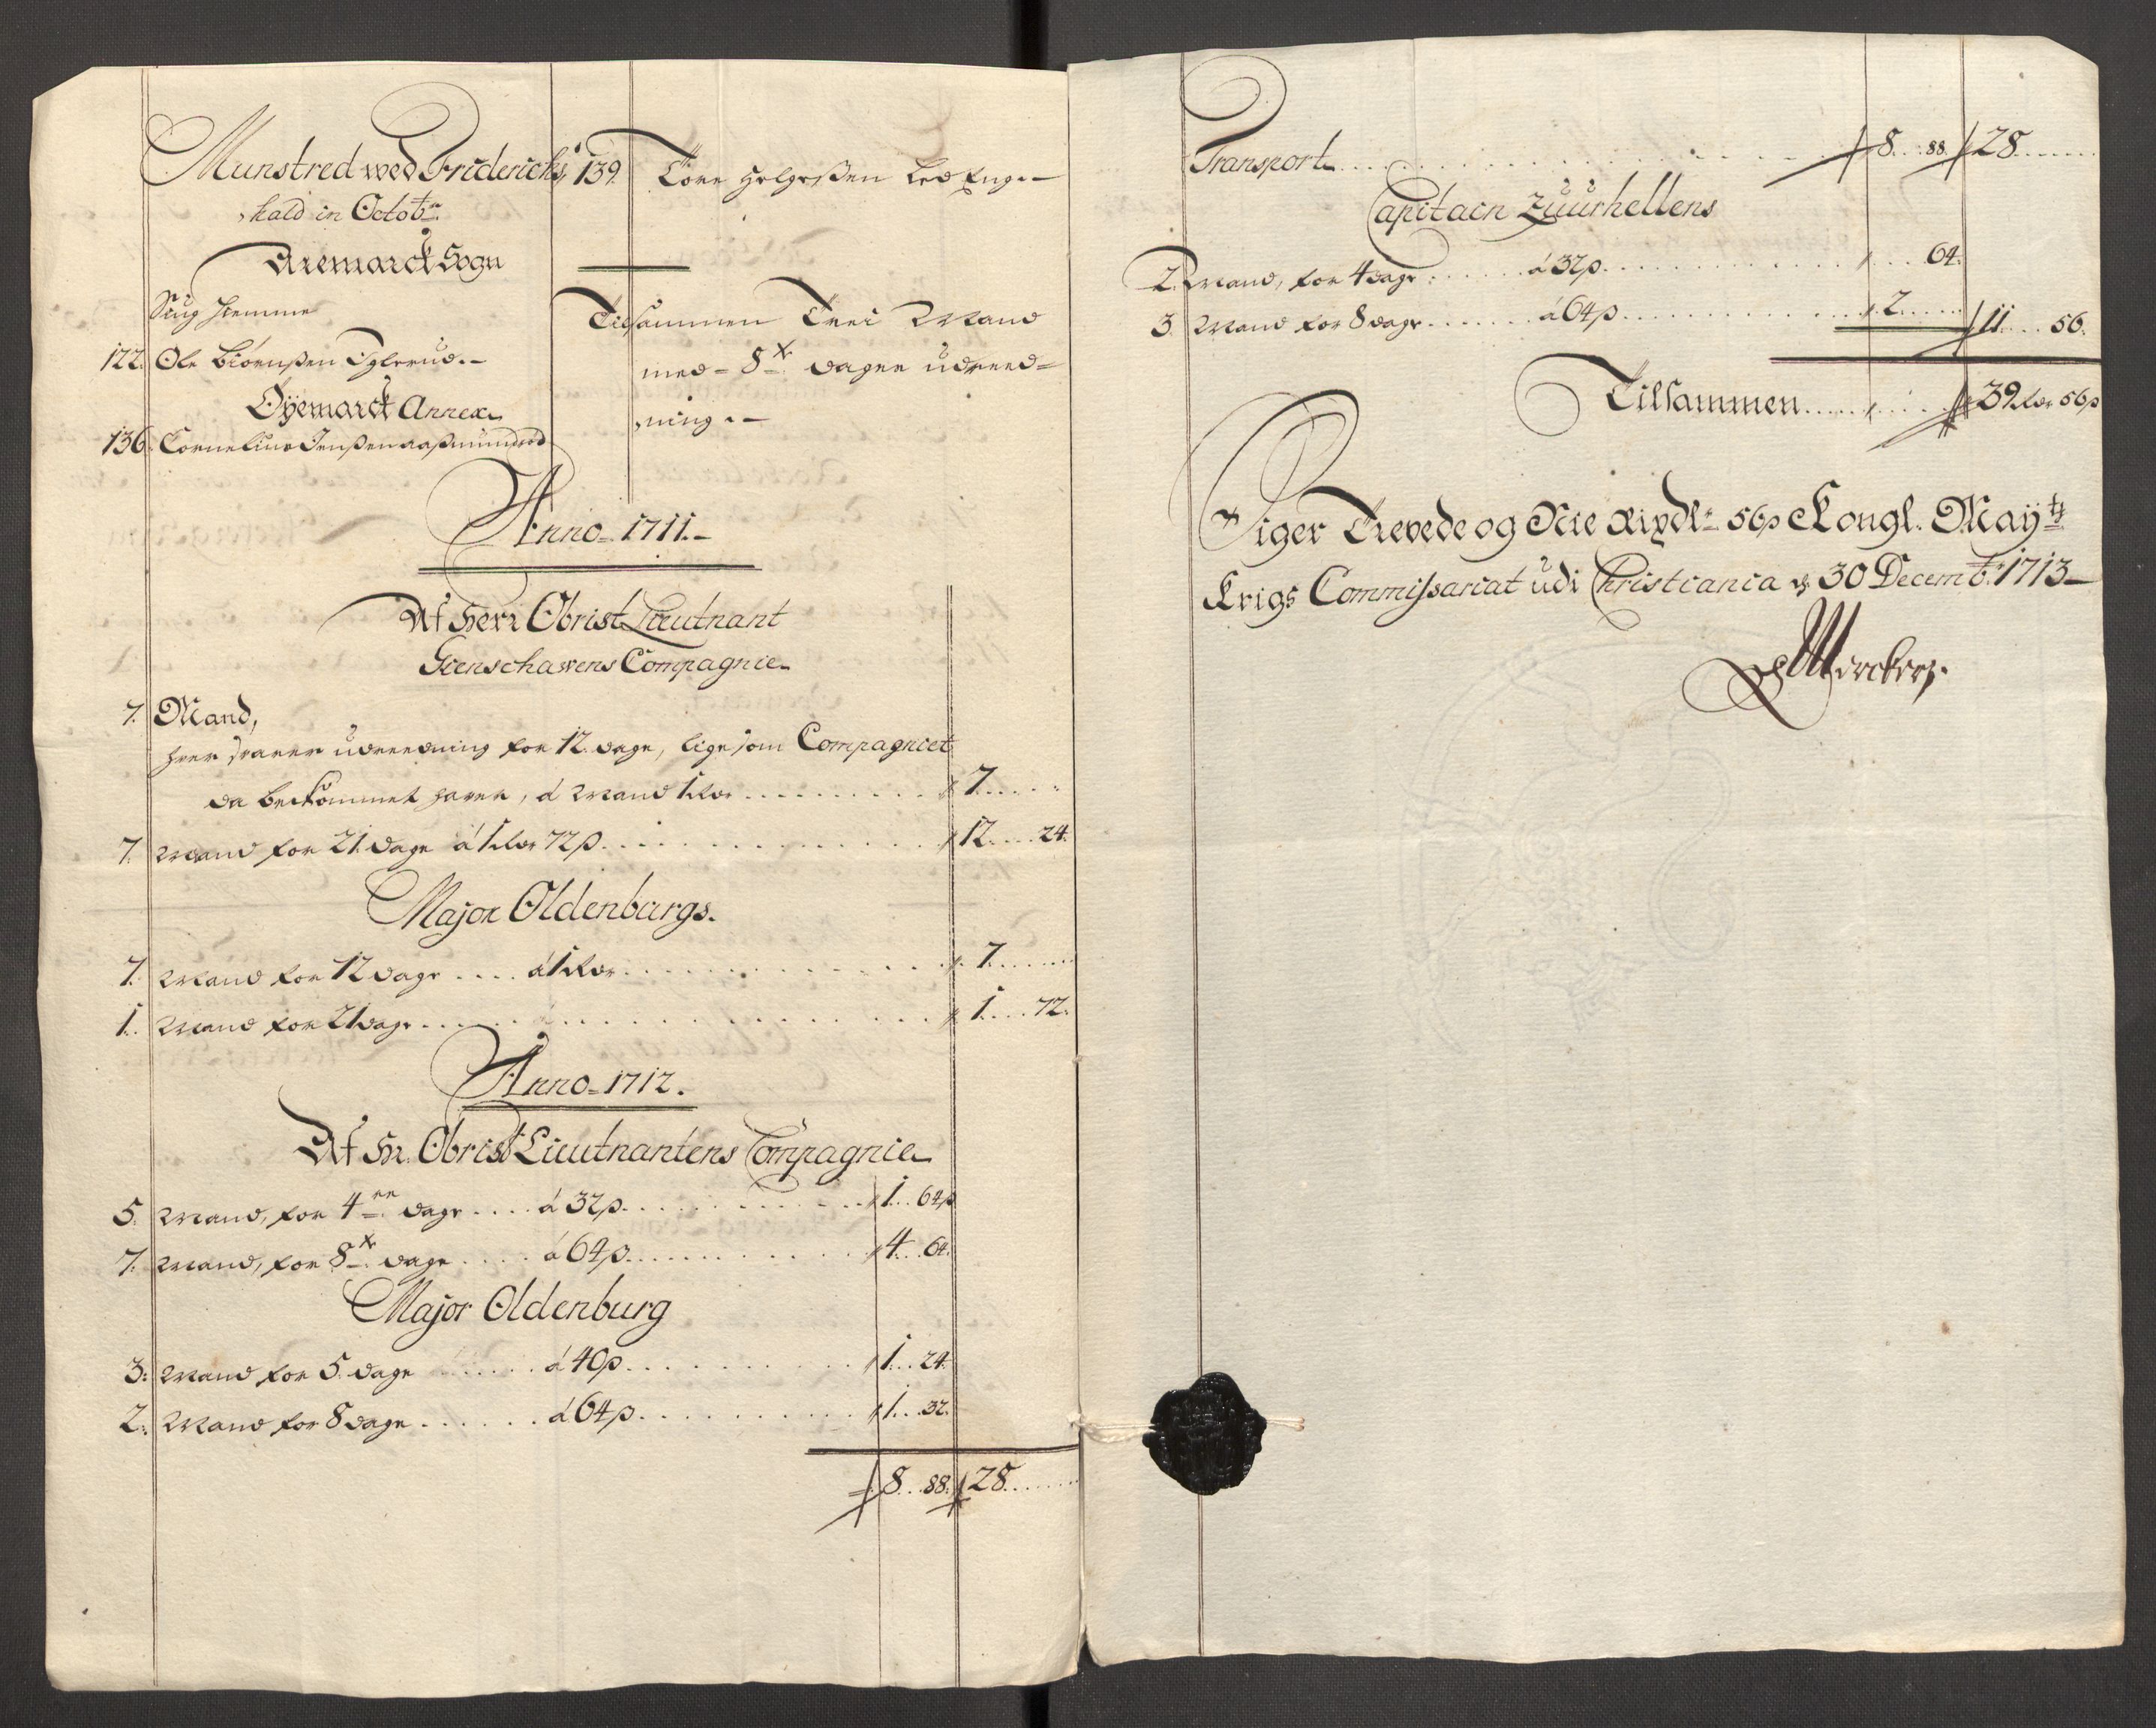 Munstred wed Friderichs,
hald in Octobr:
Aremarck Sogn
Siug hiemme
122. Ole Biørnßen Tglerud.-
Øyemarck Annex
136. Cornelius Jenßen aaßmundrød
139. Tore Helgeßen Leeng.-
Tilsammen Trei Mand
med - 8te dages udreed=
ning.-
Anno - 1711.-
Af Herr Obrist Lieutnant
Compagnie
7. Mand,
hver udreedning for 12 dage, lige som Compagniet
da bekommet haver, á Mand 1 rdr ........ 7.....
7. Mand for 21 dage á 1 rdr 72 ß. ........ 12.... 24.
Major Oldenburgs.
7. Mand for 12 dage .... á 1 rdr ........ 7.....
1. Mand for 21 dage ........ 1.... 72.
Anno - 1712.
Af Hr. Obrist Lieutnantens Compagnie
5. Mand, for 4re dage .... á 32 ß. ........ 1.. 64 ß
7. Mand, for 8te dage .... á 64 ß. ........ 4... 64.
Major Oldenburg
3. Mand for 5. dage ..... á 40 ß. ........ 1... 24.
2. Mand for 8 dage ...... á 64 ß. ........ 1... 32.
8... 88. 28.....
Transport ........ 8... 88. 28.....
Capitain Zuurhellens
2. Mand, for 4 dage ...... á 32 ß. ........ 64.
3. Mand for 8 dage ...... á 64 ß. ........ 2..... 11.... 56.
Tilsammen ........ 39 rdr 56 ß
Siger Tredede og Nie Rixdlr 56 ß Kongl. Mayts
Krigs Commissariat udi Christiania d. 30 Decembr: 1713